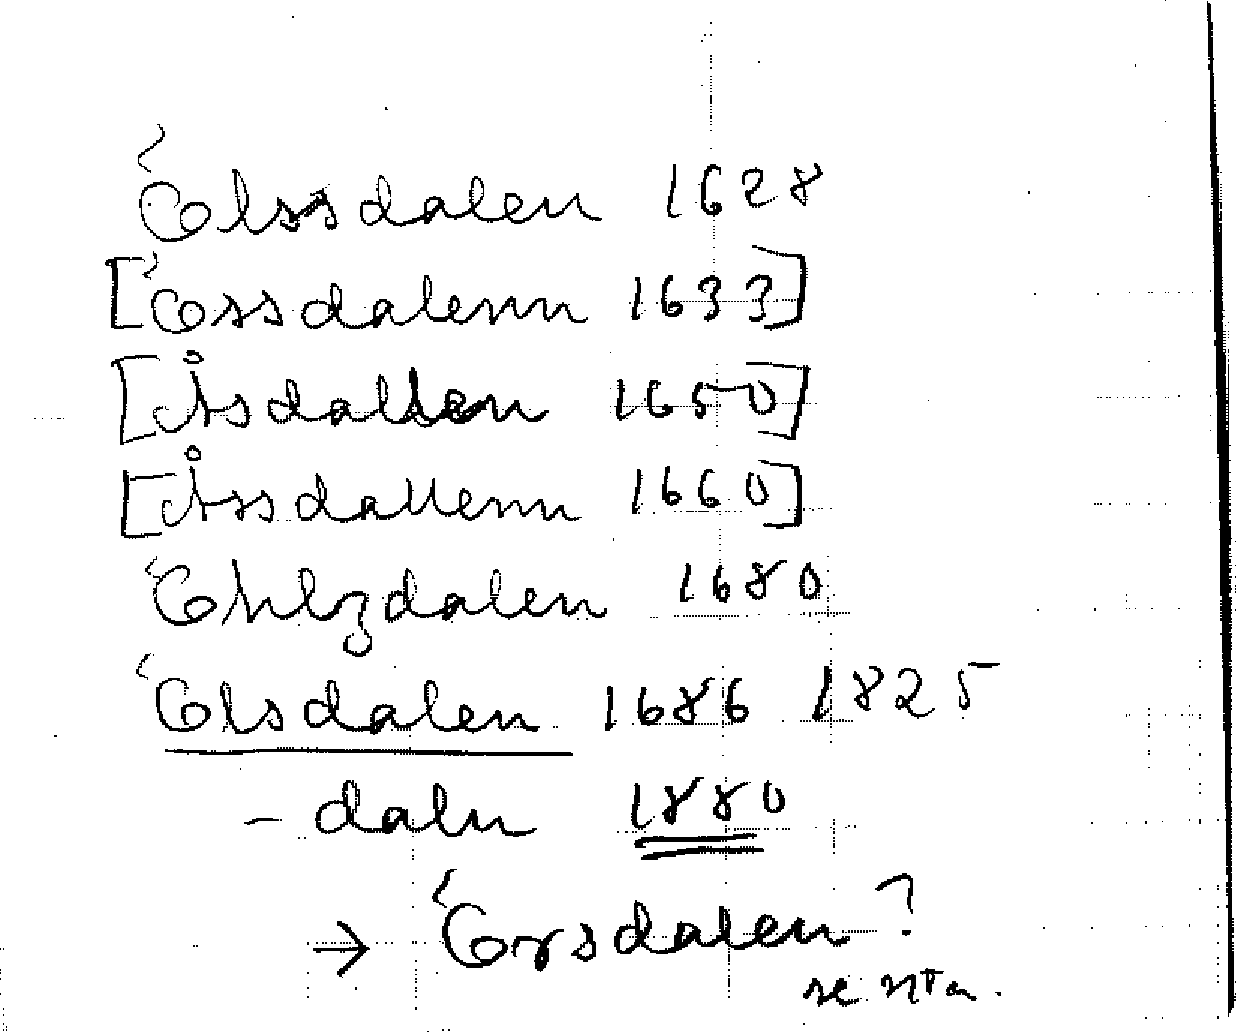 Ölssdalen 1628
[Össdalenn 1633]
[Åsdallen 1650]
[Åssdallenn 1660]
Öhlzdalen 1680
Ölsdalen 1686 1825
- daln 1880
→ Örsdalen?
se